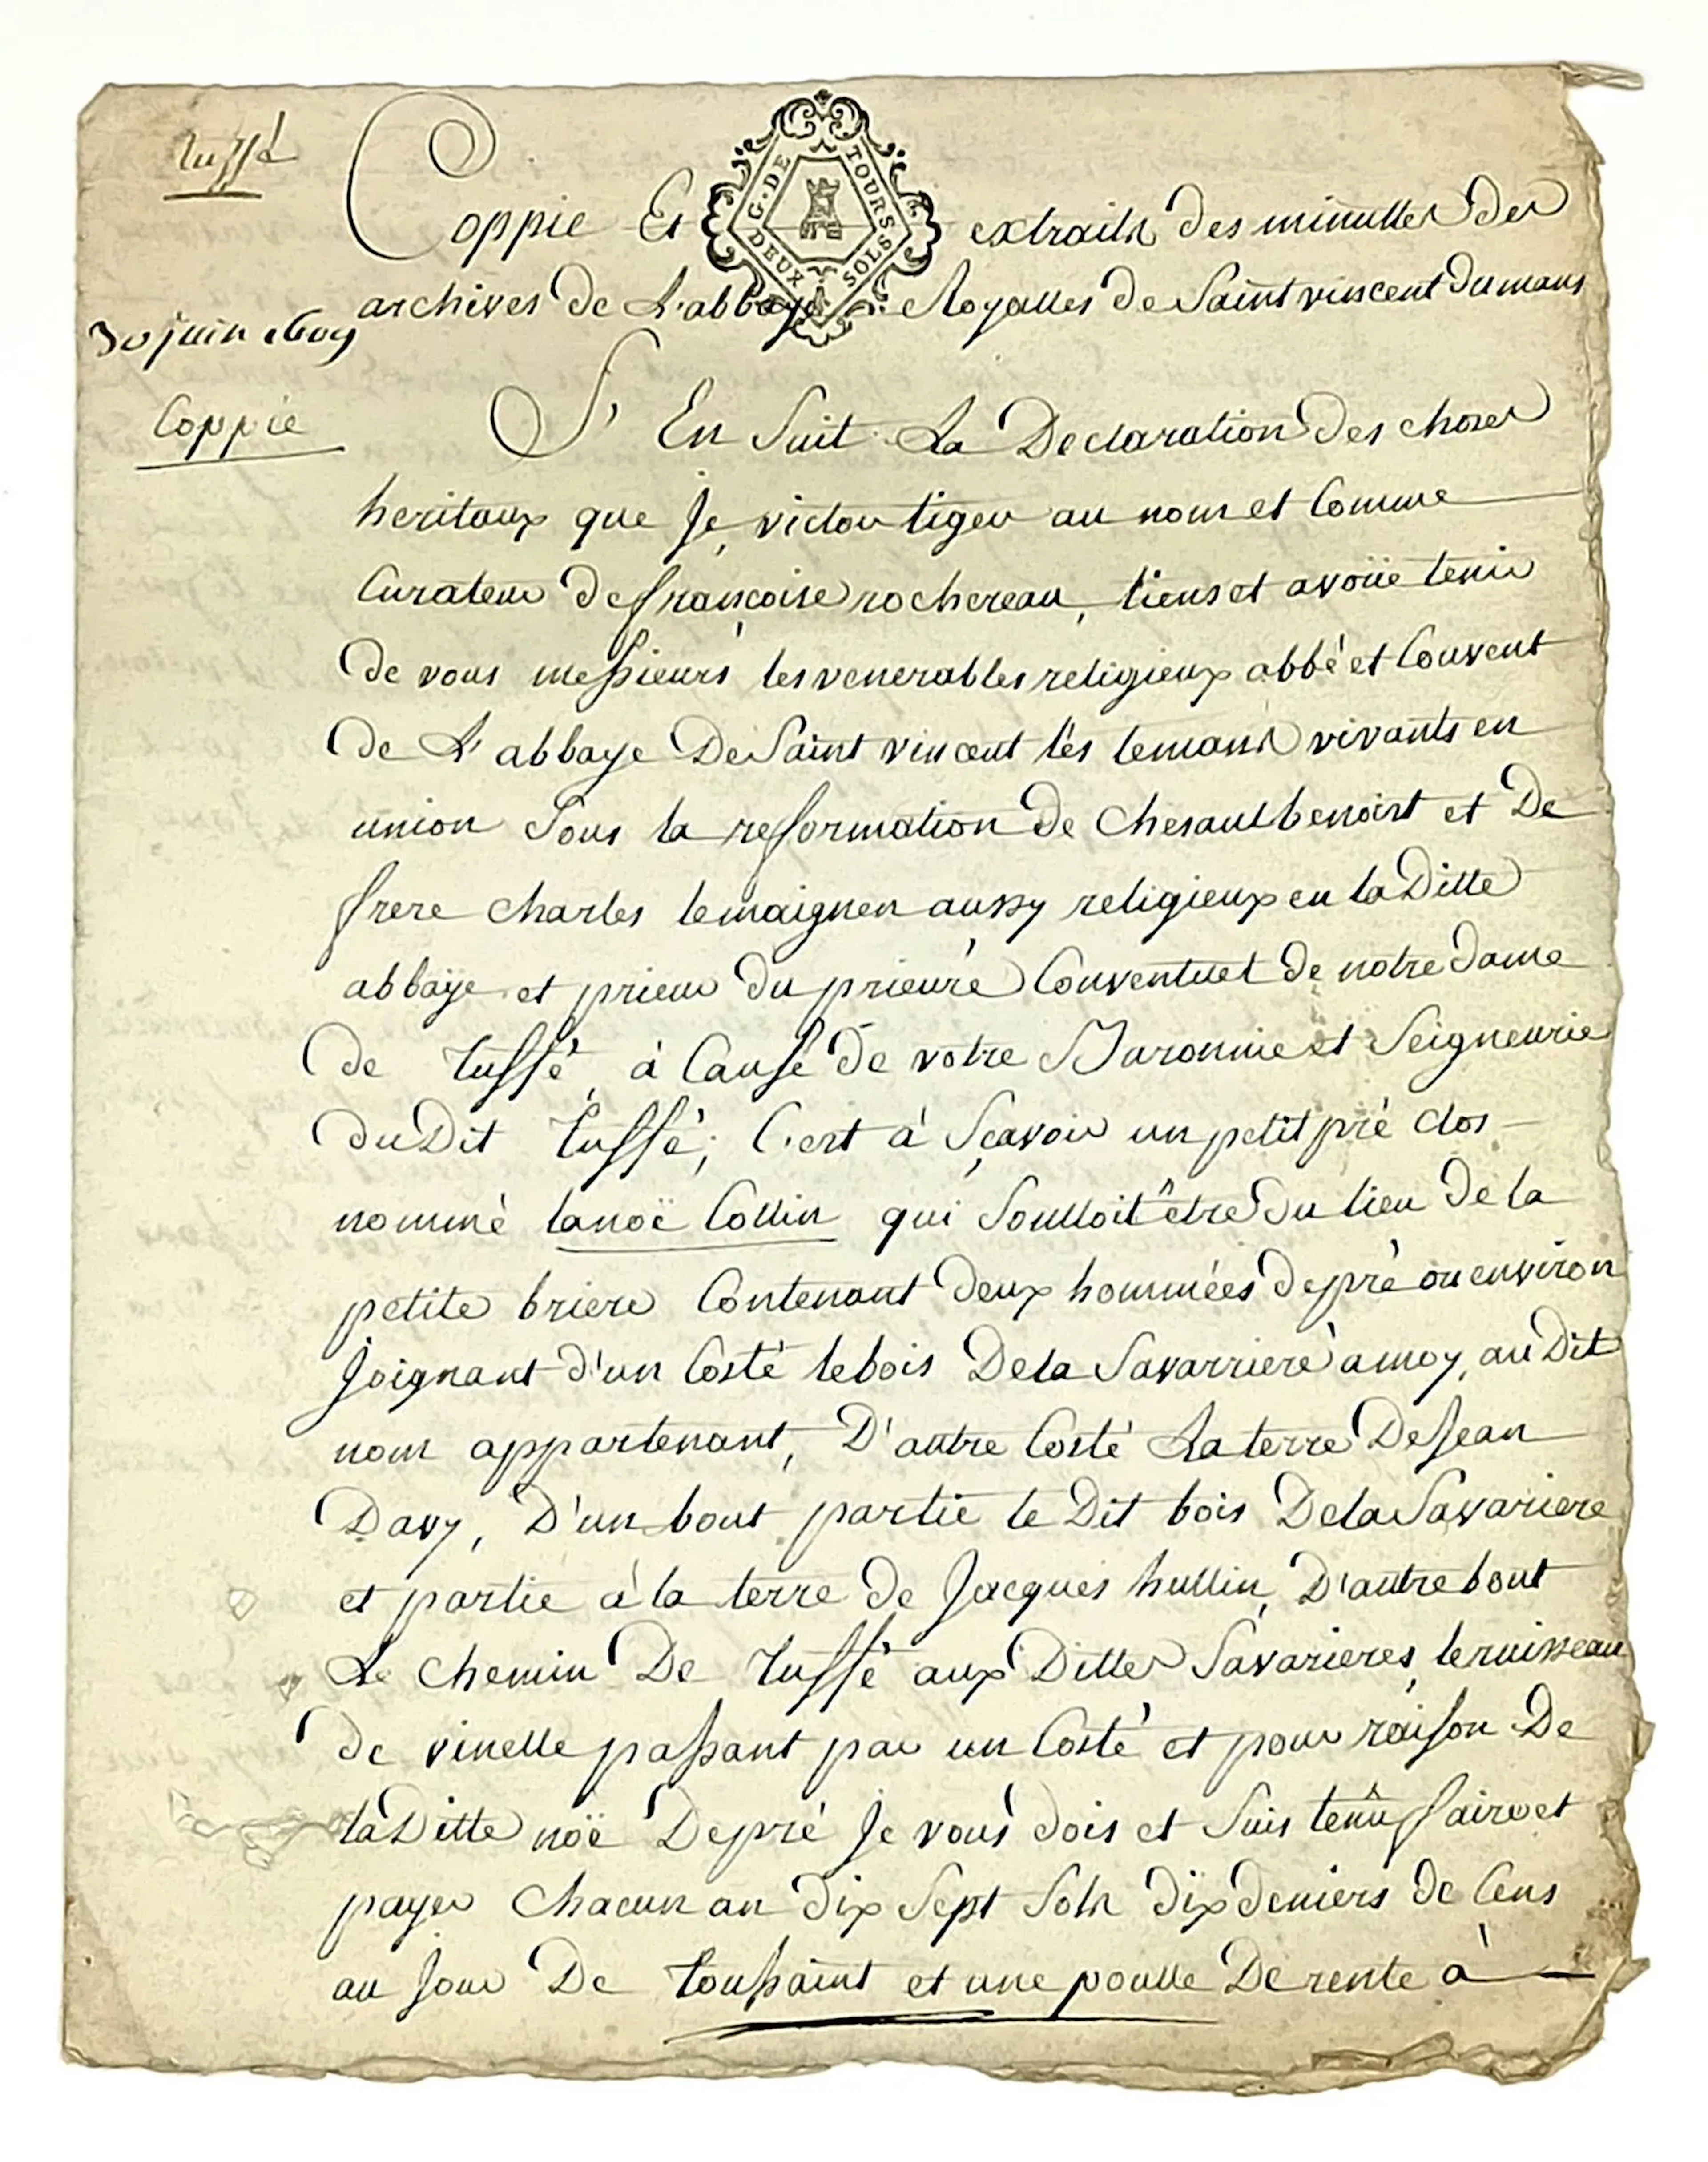 Tuffé
Coppie Et extraits des minuttes des
G. DE TOURS
DEUX SOLS
archives de L'abbaye Royalles de Saint vincent du mans
30 juin 1609
Coppie
S'En Suit La Declaration des choses
heritaux que Je, victou tigeu au nom et Comme
Curateur de françoise rochereau, tiens et avoüe tenir
de vous messieurs les venerables religieux abbé et Couvent
de L'abbaye De Saint vincent lès lemans vivants en
union Sous la refformation de chesaulbenoist et De
frere charles lemaignen aussy religieux en la Ditte
abbaÿe et prieur du prieuré Conventuel de notre dame
de tuffé, à Cause de votre Baronnie et Seigneurie
du Dit tuffé; C'est à Sçavoir un petit pré clos
nommé lanoë Collin qui Soulloit être du lieu de la
petite briere Contenant deux hommées de pré ou environ
Joignant d'un Costé le bois De la Savarriere à moy, au Dit
nom appartenant, D'autre Costé La terre De Jean
Davy, D'un bout partie le Dit bois De la Savariere
et partie à la terre de Jacques hullin, D'autre bout
Le chemin De tuffé aux Dittes Savarieres, le ruisseau
de vinelle passant par un Costé et pour raison De
la Ditte noë De pré Je vous dois et Suis tenû faire et
payer chacun an dix Sept Sols dix deniers de Cens
au Jour De toussaint et une poulle De rente à